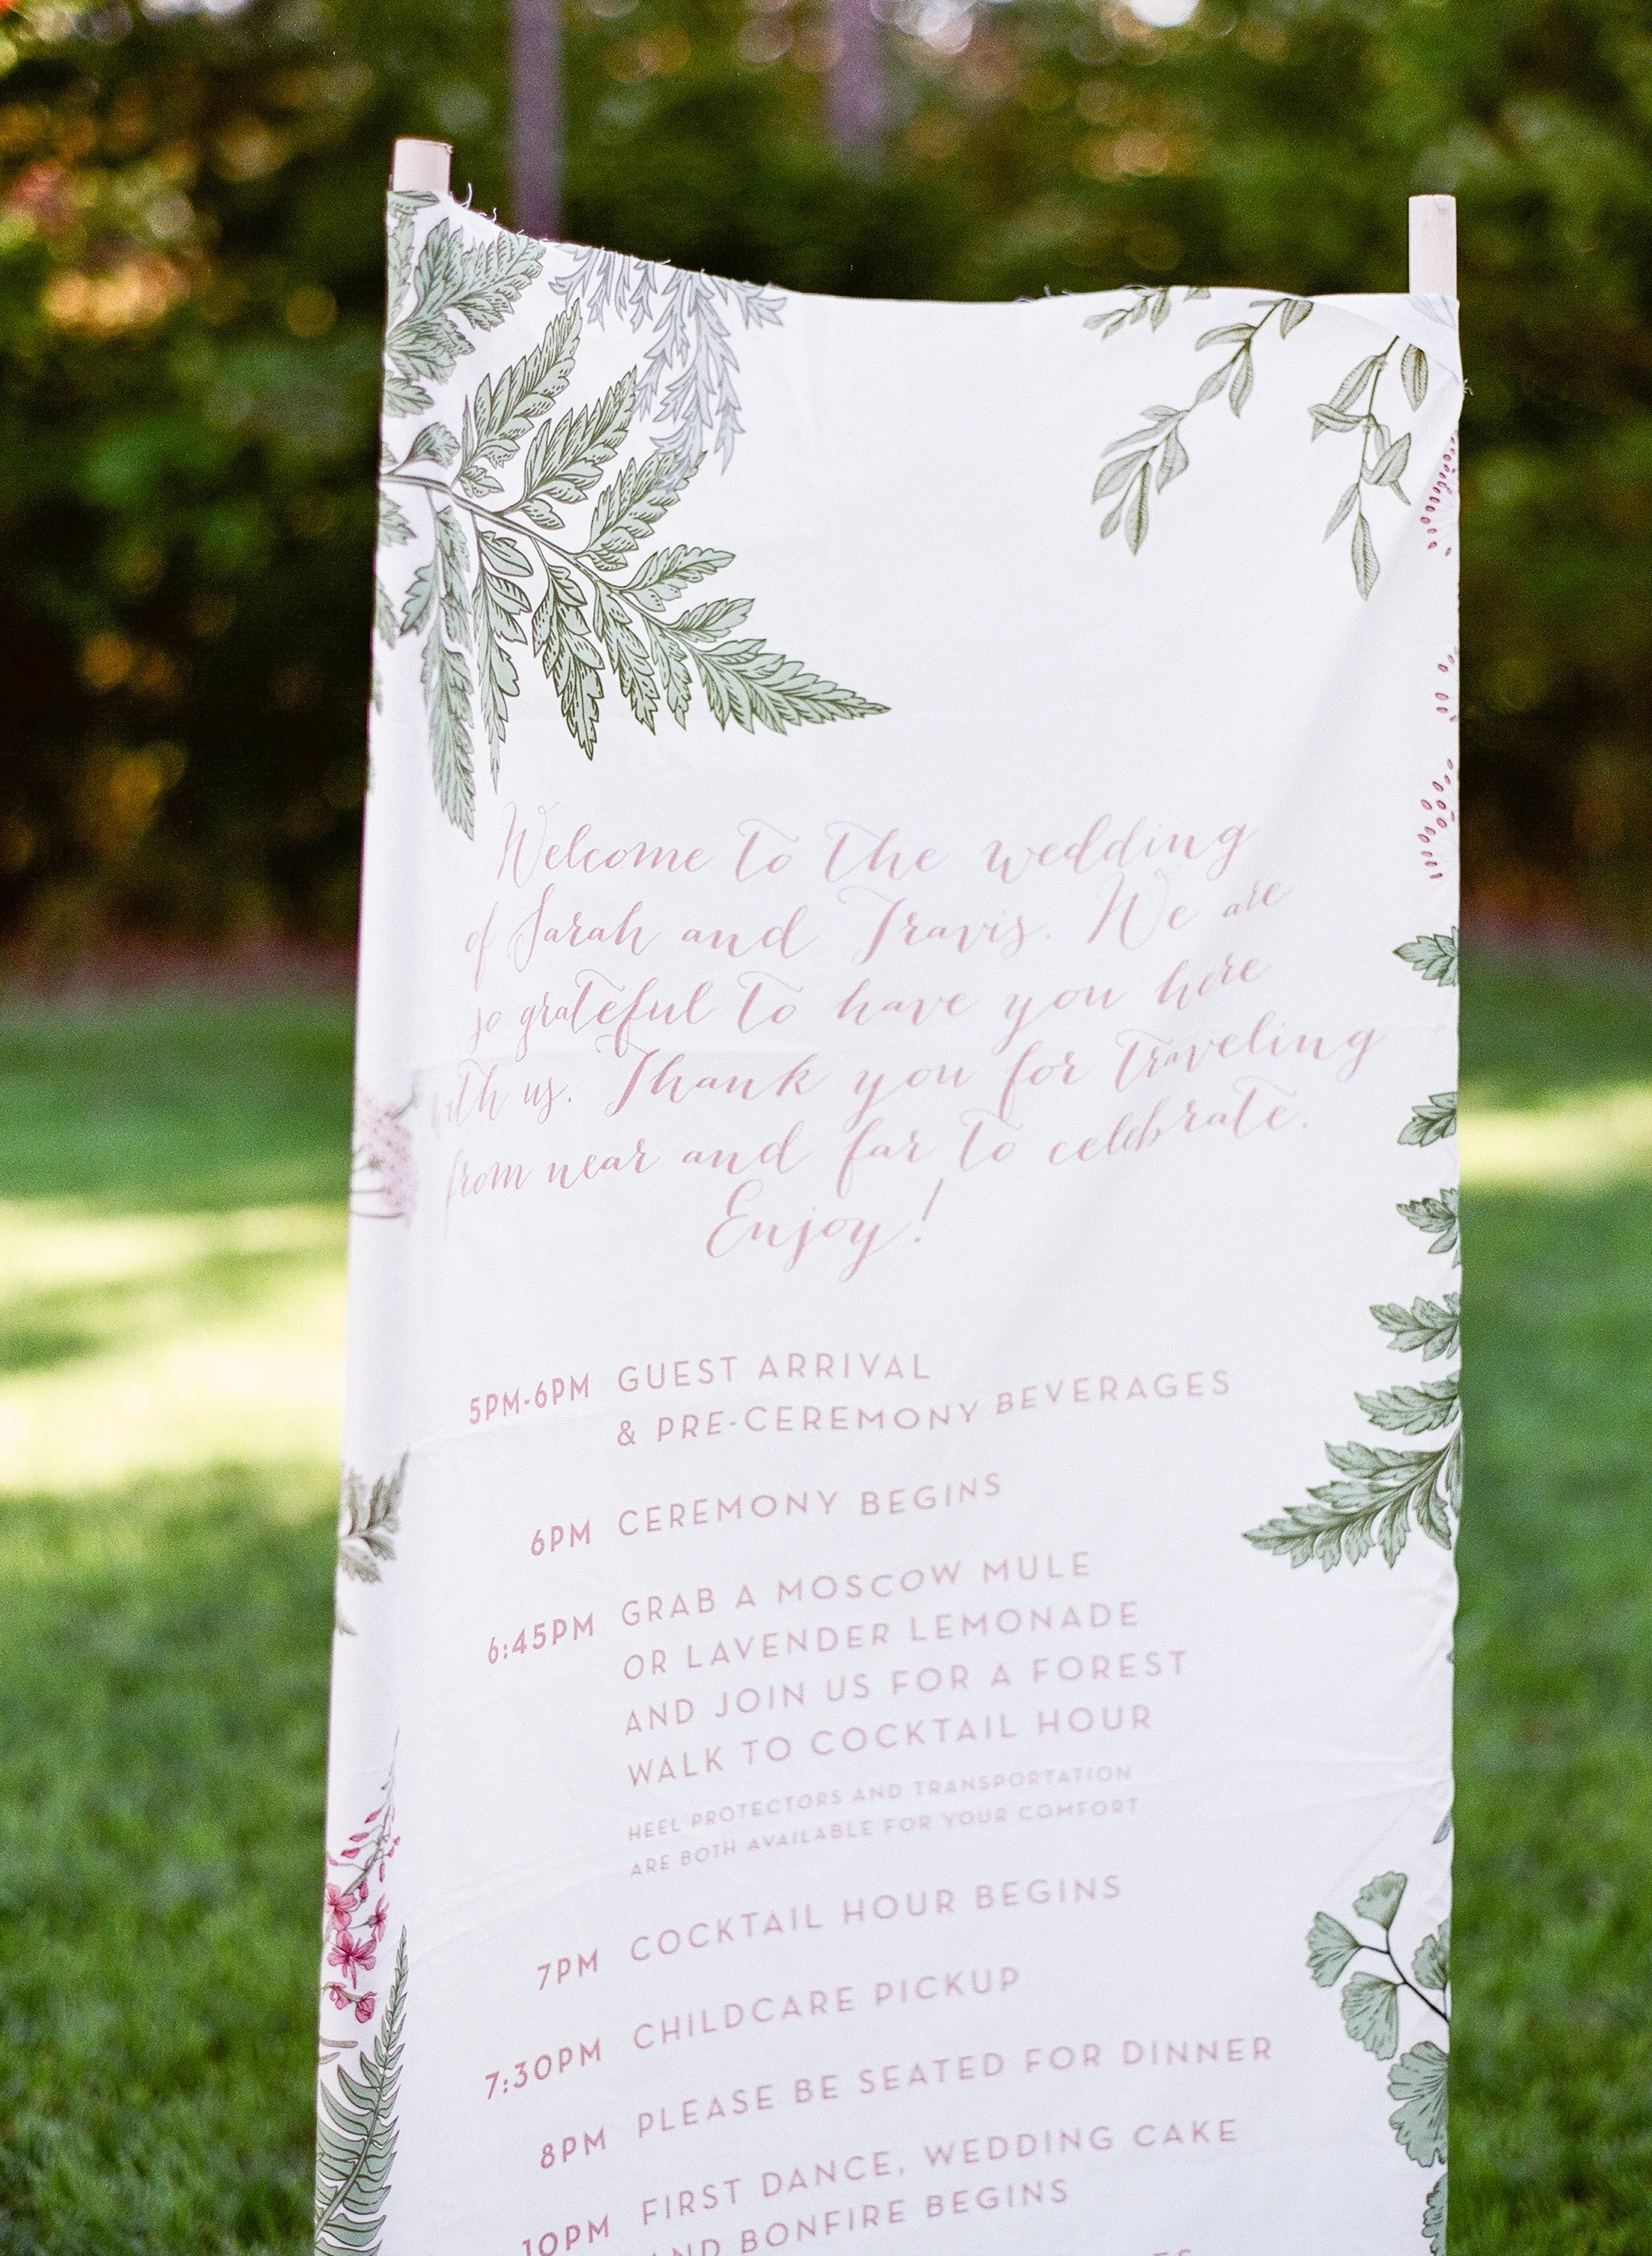 Welcome to the wedding
of Sarah and Travis. We are
so grateful to have you here
with us. Thank you for traveling
from near and far to celebrate.
Enjoy!
5PM-6PM GUEST ARRIVAL
& PRE-CEREMONY BEVERAGES
6PM CEREMONY BEGINS
6:45PM GRAB A MOSCOW MULE
OR LAVENDER LEMONADE
AND JOIN US FOR A FOREST
WALK TO COCKTAIL HOUR
HEEL PROTECTORS AND TRANSPORTATION
ARE BOTH AVAILABLE FOR YOUR COMFORT
7PM COCKTAIL HOUR BEGINS
7:30PM CHILDCARE PICKUP
8PM PLEASE BE SEATED FOR DINNER
10PM FIRST DANCE, WEDDING CAKE
AND BONFIRE BEGINS